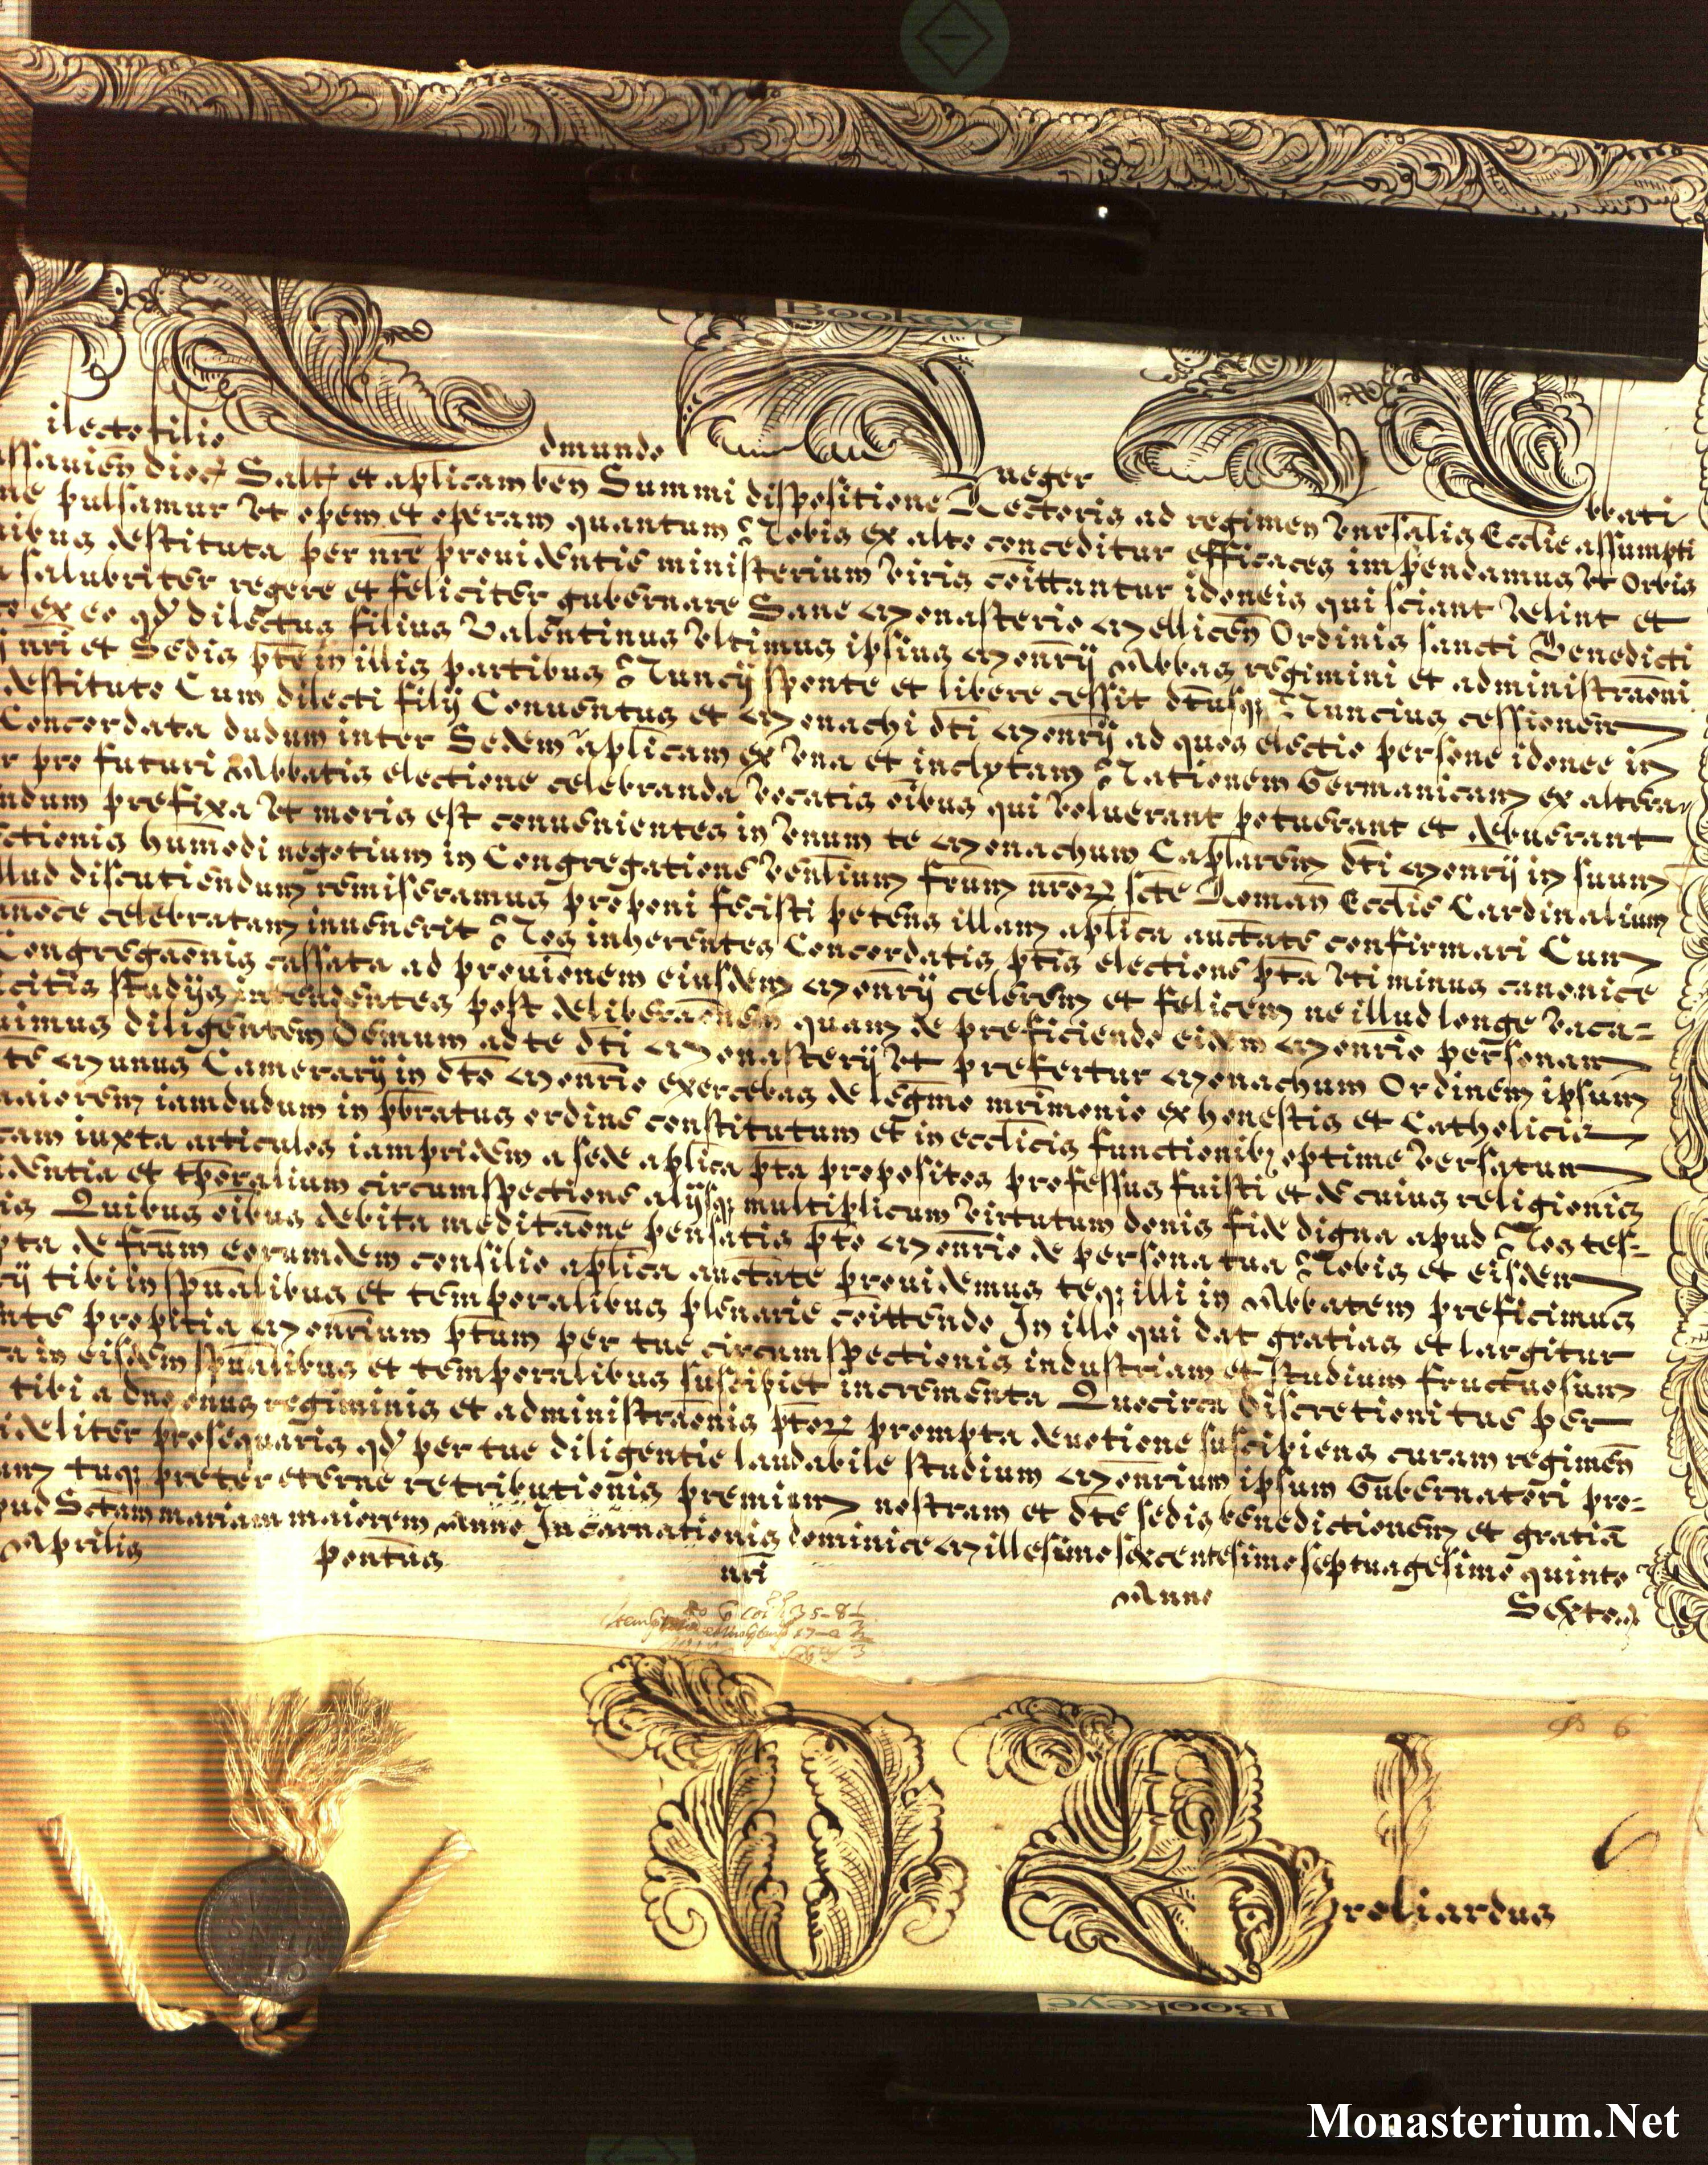 Bookeye
ilecto filio dmundo ueger bbati
ssauień dioc Saltē et aplicam beń Summi dispositione Rectoris ad regimen vnersalis Ecclie assumpti
ne pulsamur vt opem et operam quantum Nobis ex alto conceditur efficaces impendamus vt Orbis
uibus destituta per nr̄e prouidentie ministerium viris cōittantur idoneis qui sciant velint et
salubriter regere et feliciter gubernare Sane Monasterio Mellicēn Ordinis sancti Benedicti
ex eo qd dilectus filius Valentinus vltimus ipsius Monr̄ij Abbas regimini et administraōni
nri et Sedis pte in illis partibus Nuncij sponte et libere cessit dtusq Nuncius cessionem
destituto Cum dilecti filij Conuentus et Monachi dti Monr̄ij ad quos electio persone idonee in
Concordata dudum inter Sedem aplicam ex vna et inclytam Nationem Germanicam ex altera
r pro futuri Abbatis electione celebranda vocatis oibus qui voluerant potuerant et debuerant
ndum prefixa vt moris est conuenientes in vnum te Monachum Caplarem dti Monr̄ij in suum
ctionis humōdi negotium in Congregatione venlium frum nror scte Roman Ecclie Cardinalium
llud discutiendum remiseramus proponi fecisti petens illam aplica auctate confirmari Cum
celebratam inuenerit Nos inherentes Concordatis ptis electione pta vti minus canonice
Congregaōnis cassata ad prouionem eiusdem Monr̄ij celerem et felicem ne illud longe vaca=
citis studijs intendentes post deliberaōnem quam de preficiendo eidem Monrio personam
uimus diligentem Demum ad te dti Monasterij vt prefertur Monachum Ordinem ipsum
te Munus Camerarij in dto Monrio exercebas de legmo mrimonio ex honestis et Catholicis
maiorem iamdudum in pbratus ordine constitutum et in ecclicis functionibz optime versatum
cam iuxta articulos iampridem a sede aplica pta propositos professus fuisti et de cuius religionis
identia et tporalium circumspectione alijsq multiplicum virtutum donis fide digna apud Nos tes=
is Quibus oibus debita meditaōne pensatis pto Monrio de persona tua Nobis et eisdem
pta de frum eorumdem consilio aplica auctate prouidemus teq illi in Abbatem preficimus
rij tibi in spualibus et temporalibus plenarie cōittendo In illo qui dat gratias et largitur
nte propitia Monrium ptum per tue circumspectionis industriam et studium fructuosum
ra in eisdem spualibus et temporalibus suscipiet incrementa Quocirca Discretioni tue per
tibi a dno onus regiminis et administraōnis ptor prompta deuotione suscipiens curam regimen
ideliter prosequaris qd per tue diligentie laudabile studium Monrium ipsum Gubernatori pro=
um tuq preter eterne retributionis premium nostram et dte sedis benedictionem et gratiā
pud Sctam mariam maiorem Anno Incarnationis dominice Millesimo sexcentesimo septuagesimo quinto
Aprilis pontus nri Anno Sexto
roliardus
Bookeye
Monasterium.Net